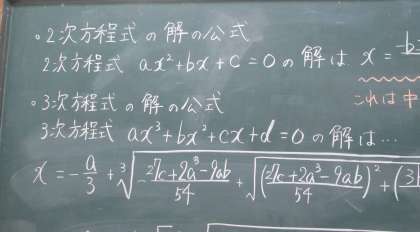 ○2次方程式の解の公式
2次方程式 ax²+bx+c=0の解は x=
○3次方程式の解の公式 これは中
3次方程式 ax³+bx²+cx+d=0の解は…
x=-a/3+³√-27c+2a³-9ab/54+√(27c+2a³-9ab/54)²+(3b